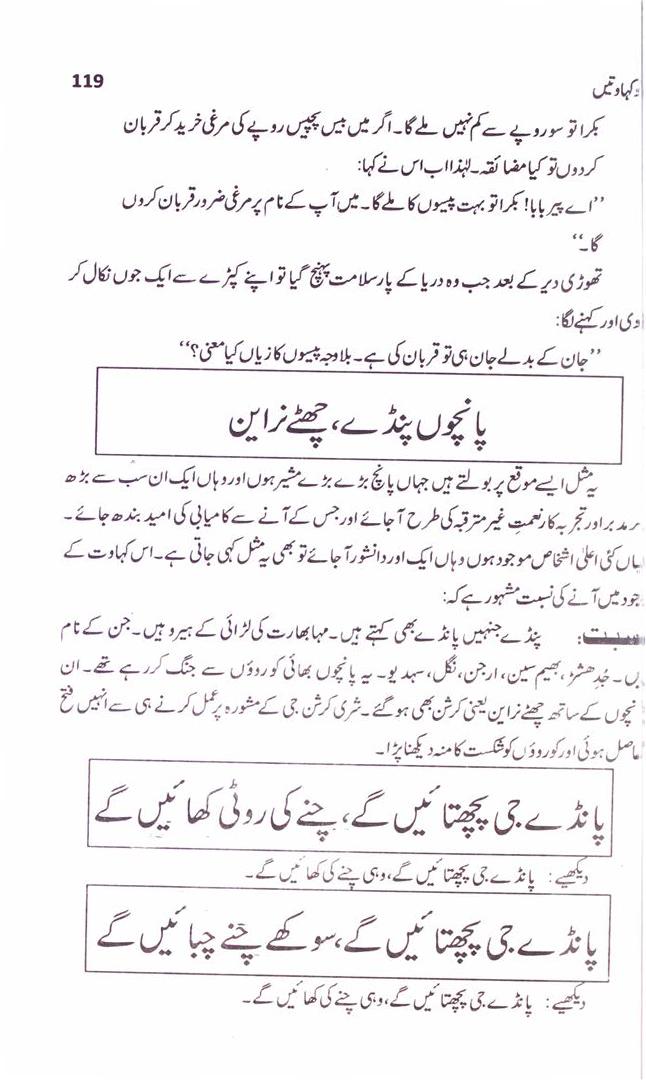 119
کہاوتیں
بکرا تو سو روپے سے کم نہیں ملے گا۔ اگر میں بیس پچیس روپے کی مرغی خرید کر قربان
کر دوں تو کیا مضائقہ۔ لہٰذا اب اس نے کہا:
’’اے پیر بابا! بکرا تو بہت پیسوں کا ملے گا۔ میں آپ کے نام پر مرغی ضرور قربان کروں
گا۔‘‘
تھوڑی دیر کے بعد جب وہ دریا کے پار سلامت پہنچ گیا تو اپنے کپڑے سے ایک جوں نکال کر
دی اور کہنے لگا:
’’جان کے بدلے جان ہی تو قربان کی ہے۔ بلاوجہ پیسوں کا زیاں کیا معنی؟‘‘
پانچوں پنڈے، چھٹے نراین
یہ مثل ایسے موقع پر بولتے ہیں جہاں پانچ بڑے بڑے مشیر ہوں اور وہاں ایک ان سب سے بڑھ
مدبر اور تجربہ کار نعمتِ غیر مترقبہ کی طرح آ جائے اور جس کے آنے سے کامیابی کی امید بندھ جائے۔
کئی اعلیٰ اشخاص موجود ہوں وہاں ایک اور دانشور آ جائے تو بھی یہ مثل کہی جاتی ہے۔ اس کہاوت کے
جود میں آنے کی نسبت مشہور ہے کہ:
پنڈے جنہیں پانڈے بھی کہتے ہیں۔ مہابھارت کی لڑائی کے ہیرو ہیں۔ جن کے نام
ں۔ جُدِھشٹر، بھیم سین، ارجن، نگل، سہدیو۔ یہ پانچوں بھائی کوروؤں سے جنگ کر رہے تھے۔ ان
نچوں کے ساتھ چھٹے نراین یعنی کرشن بھی ہو گئے۔ شری کرشن جی کے مشورہ پر عمل کرنے ہی سے انہیں فتح
حاصل ہوئی اور کوروؤں کو شکست کا منہ دیکھنا پڑا۔
پانڈے جی پچھتائیں گے، چنے کی روٹی کھائیں گے
دیکھیے: پانڈے جی پچھتائیں گے، وہی چنے کی کھائیں گے۔
پانڈے جی پچھتائیں گے، سوکھے چنے چبائیں گے
دیکھیے: پانڈے جی پچھتائیں گے، وہی چنے کی کھائیں گے۔